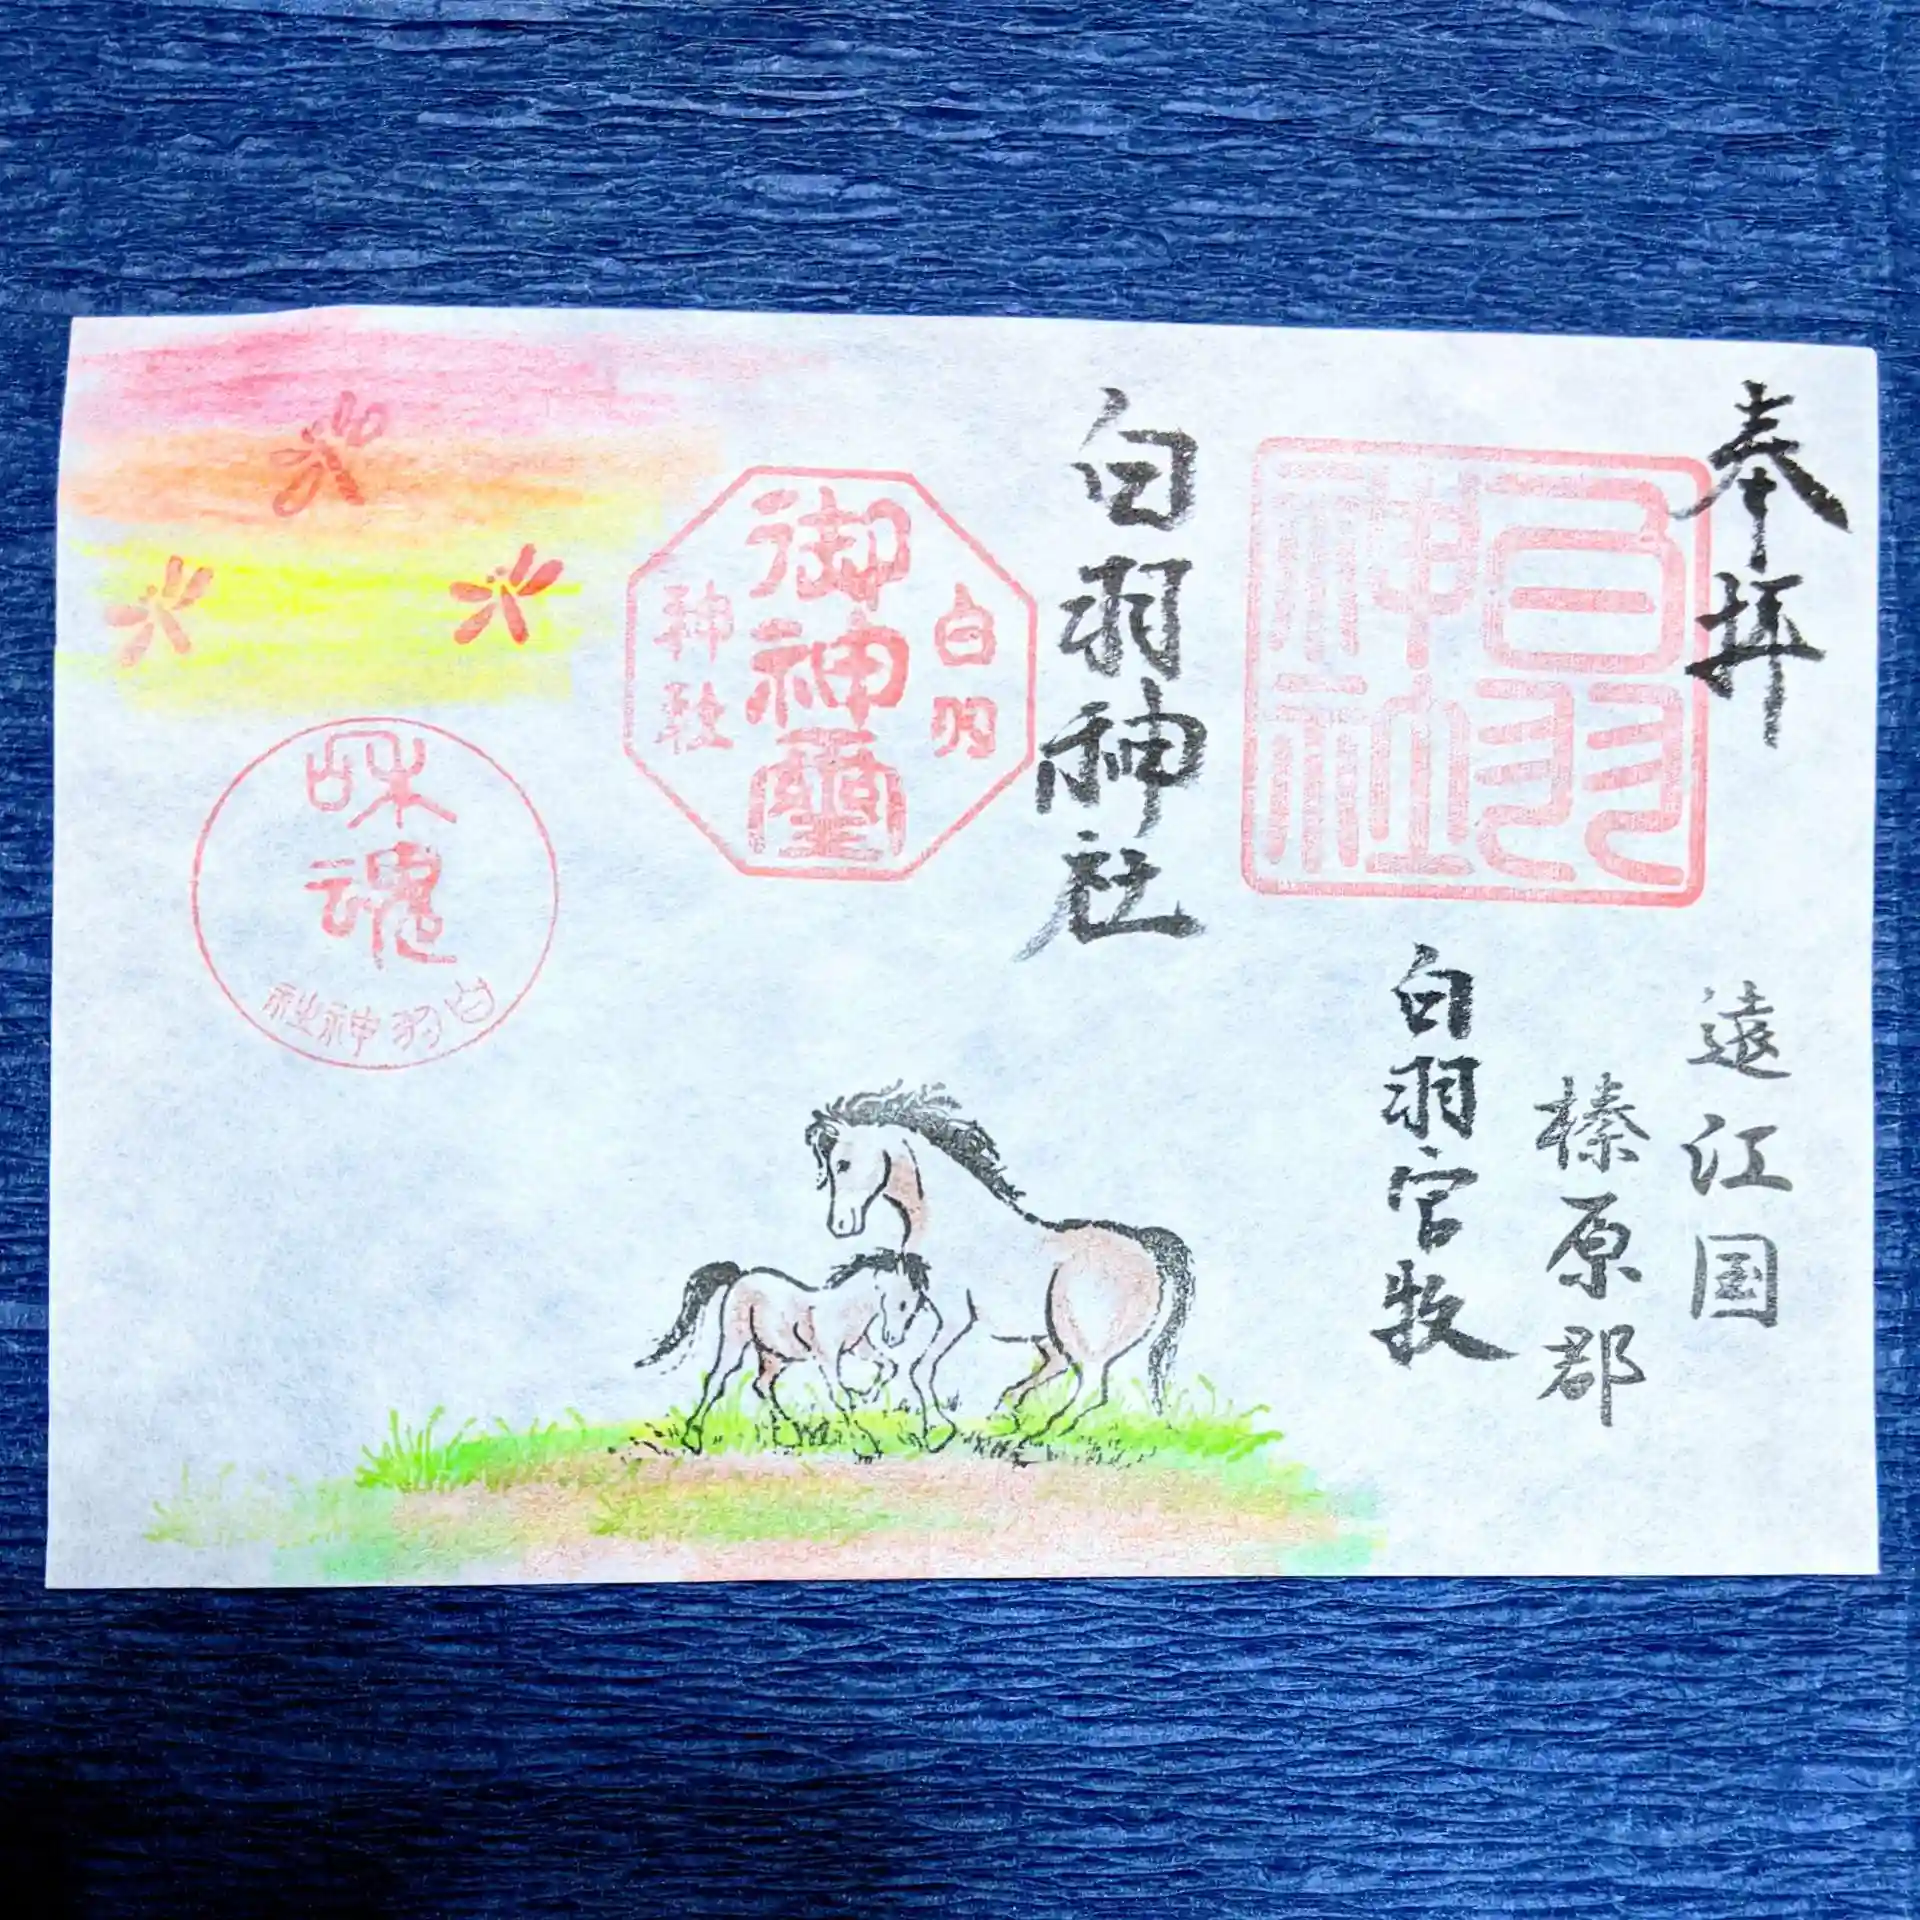 奉拝
遠江国
榛原郡
白羽官牧
白羽
神社
白羽神社
白羽
御神璽
神社
和魂
白羽神社